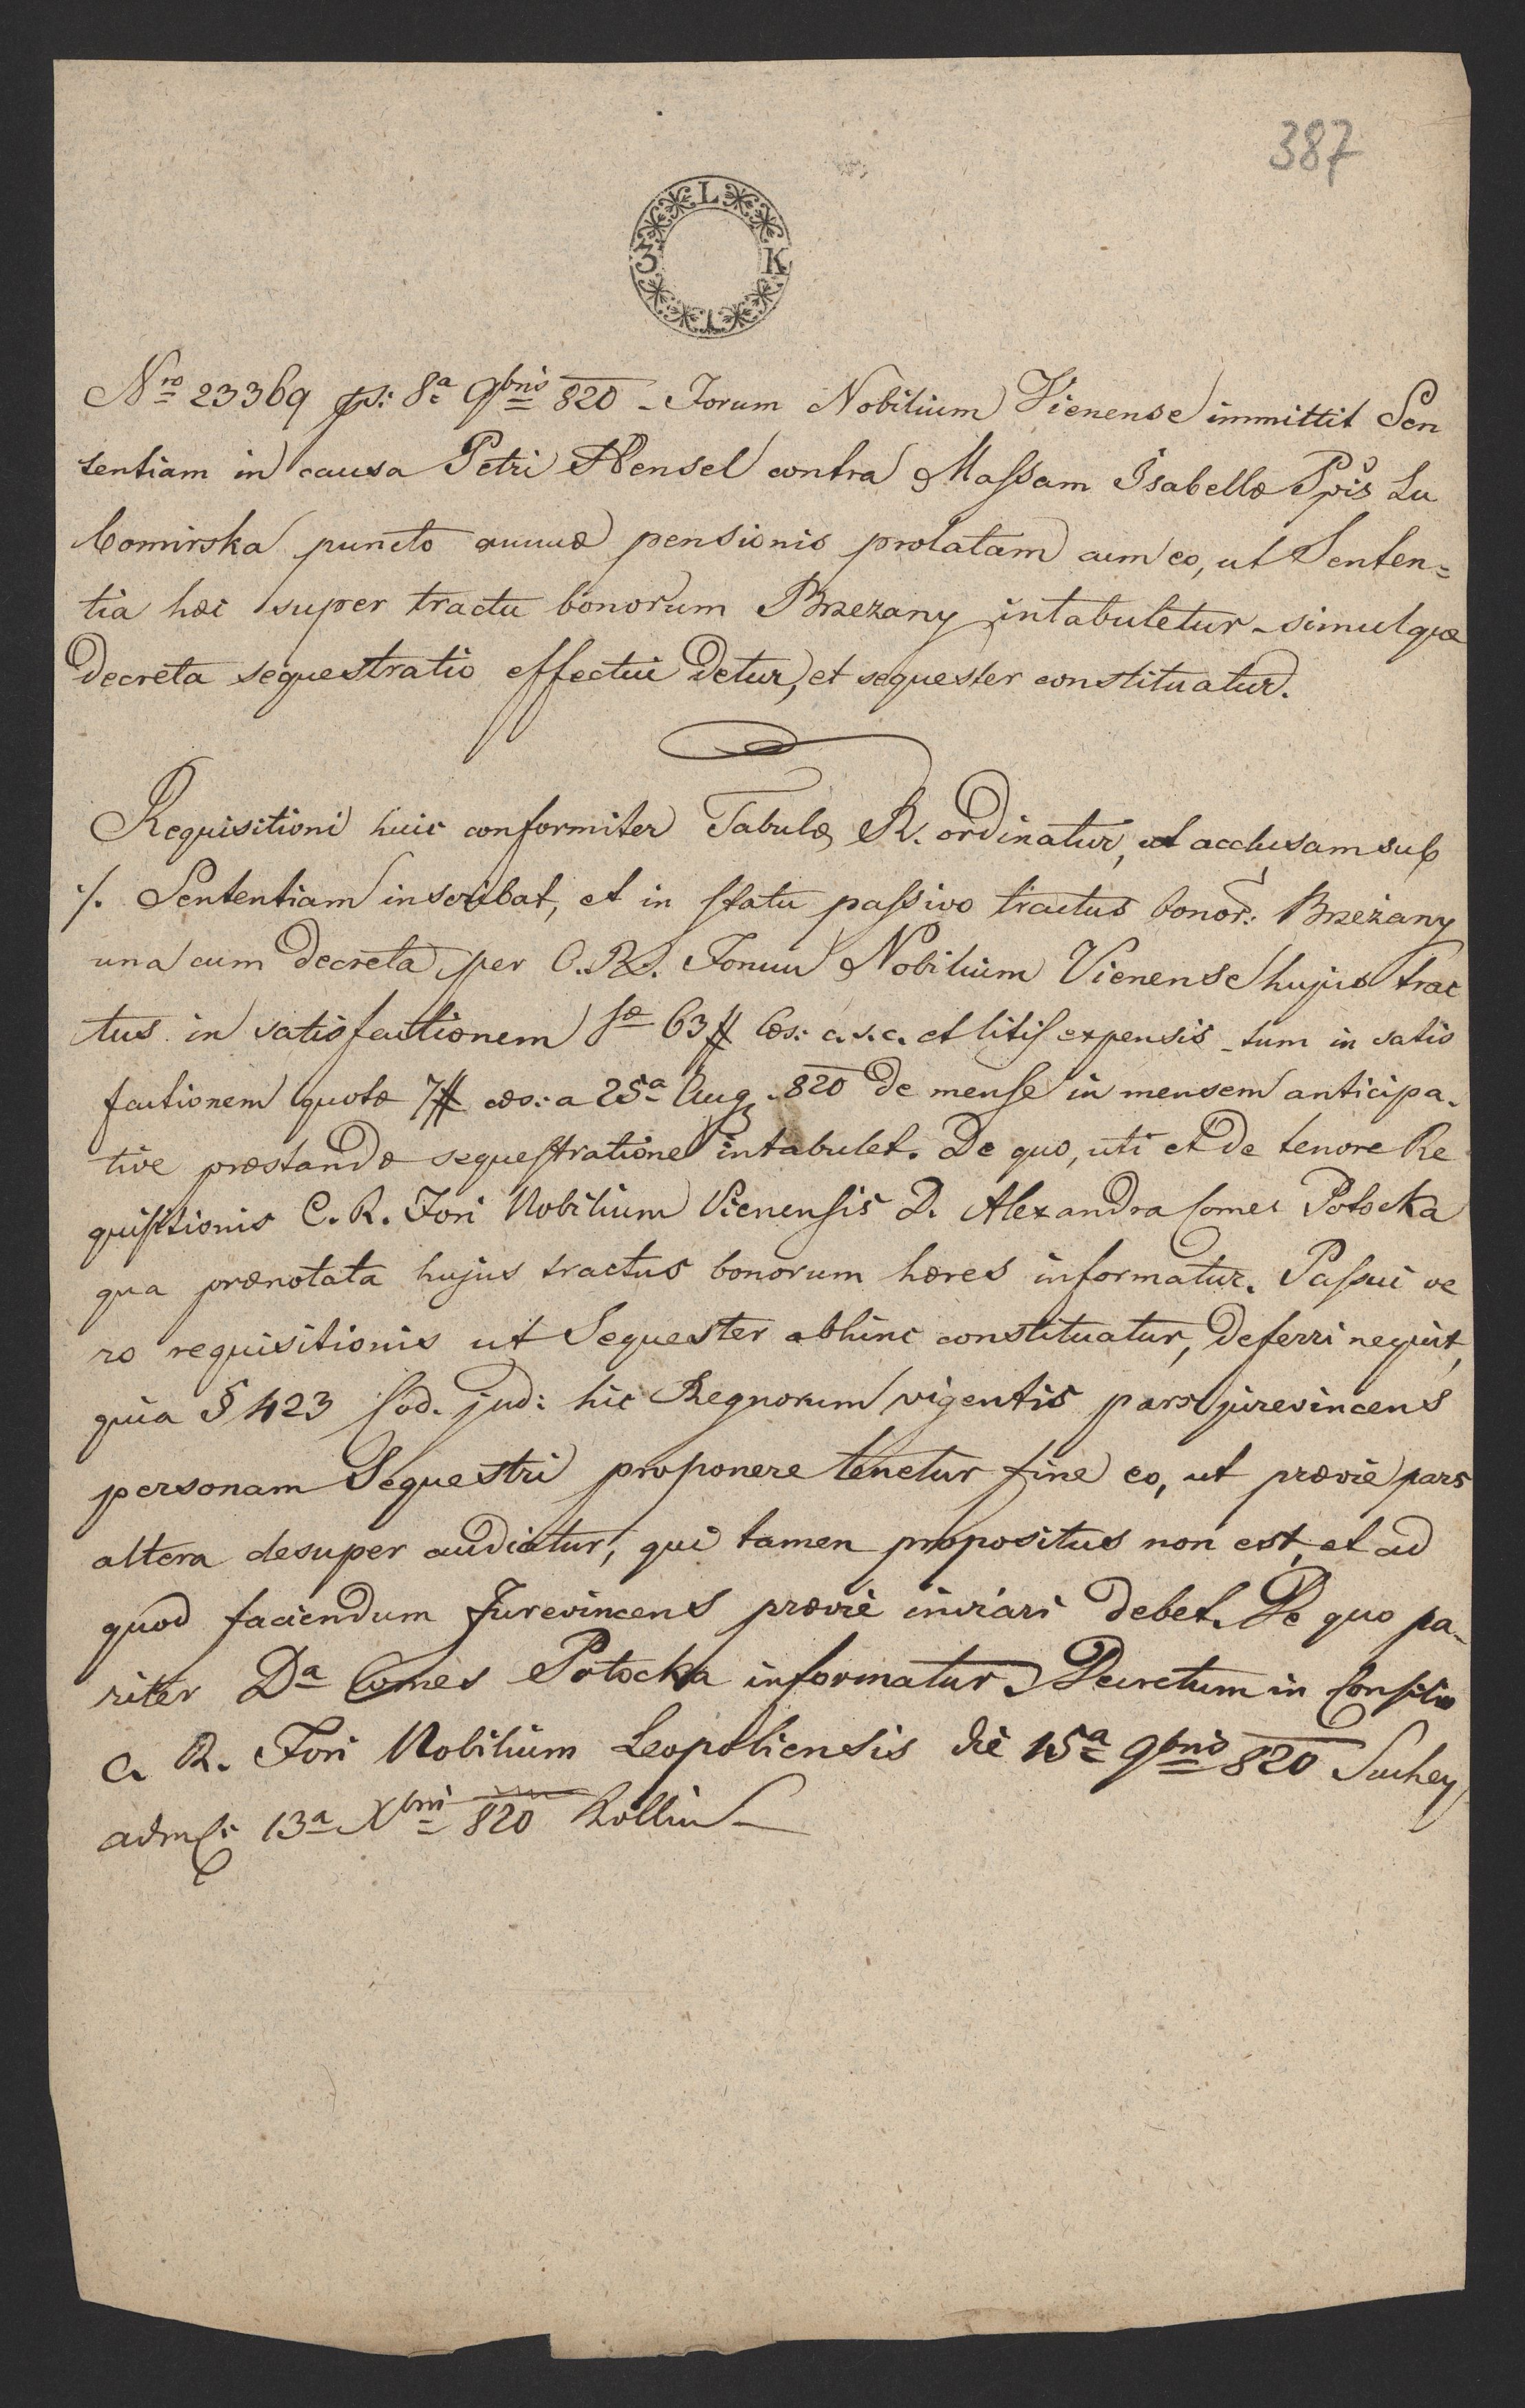 387
L
3 K
T
Nro 23369 ps: 8a 9bris 820 - Forum Nobilium Vienense immittit Sen
tentiam in causa Petri Hensel contra Massam Isabellæ Ppis Lu
bomirska puncto annuæ pensionis prolatam cum eo, ut Senten=
tia hæc super tractu bonorum Brzezany intabuletur - simulque
decreta sequestratio effectui detur, et sequester constituatur.
Requisitioni huic conformiter Tabulæ R. ordinatur, ut acclusam sub
·/. Sententiam inscribat, et in statu passivo tractus bonor: Brzeżany
una cum decreta per C. R. Forum Nobilium Vienense hujus trac
tus in satisfactionem sæ 63 # cæs: c. s. c. et litis expensis - tum in satis
factionem quotæ 7 # cæs: a 25a Aug. 820 de mense in mensem anticipa-
tive præstandæ sequestratione intabulet. De quo, uti et de tenore Re
quisitionis C. R. Fori Nobilium Vienensis D. Alexandra Comes Potocka
qua prænotata hujus tractus bonorum hæres informatur. Passui ve
ro requisitionis ut Sequester abhinc constituatur, deferri nequit,
quia § 423 Cod. jud: hic Regnorum vigentis pars jurevincens
personam Sequestri proponere tenetur fine eo, ut prævie pars
altera desuper audiatur, qui tamen propositus non est, et ad
quod faciendum Jurevincens prævie inviari debet. De quo pa-
riter Da Comes Potocka informatur. Decretum in Consilio
C. R. Fori Nobilium Leopoliensis die 15a 9bris 820 Suchey
adms: 13a Xbri 820 Rollin